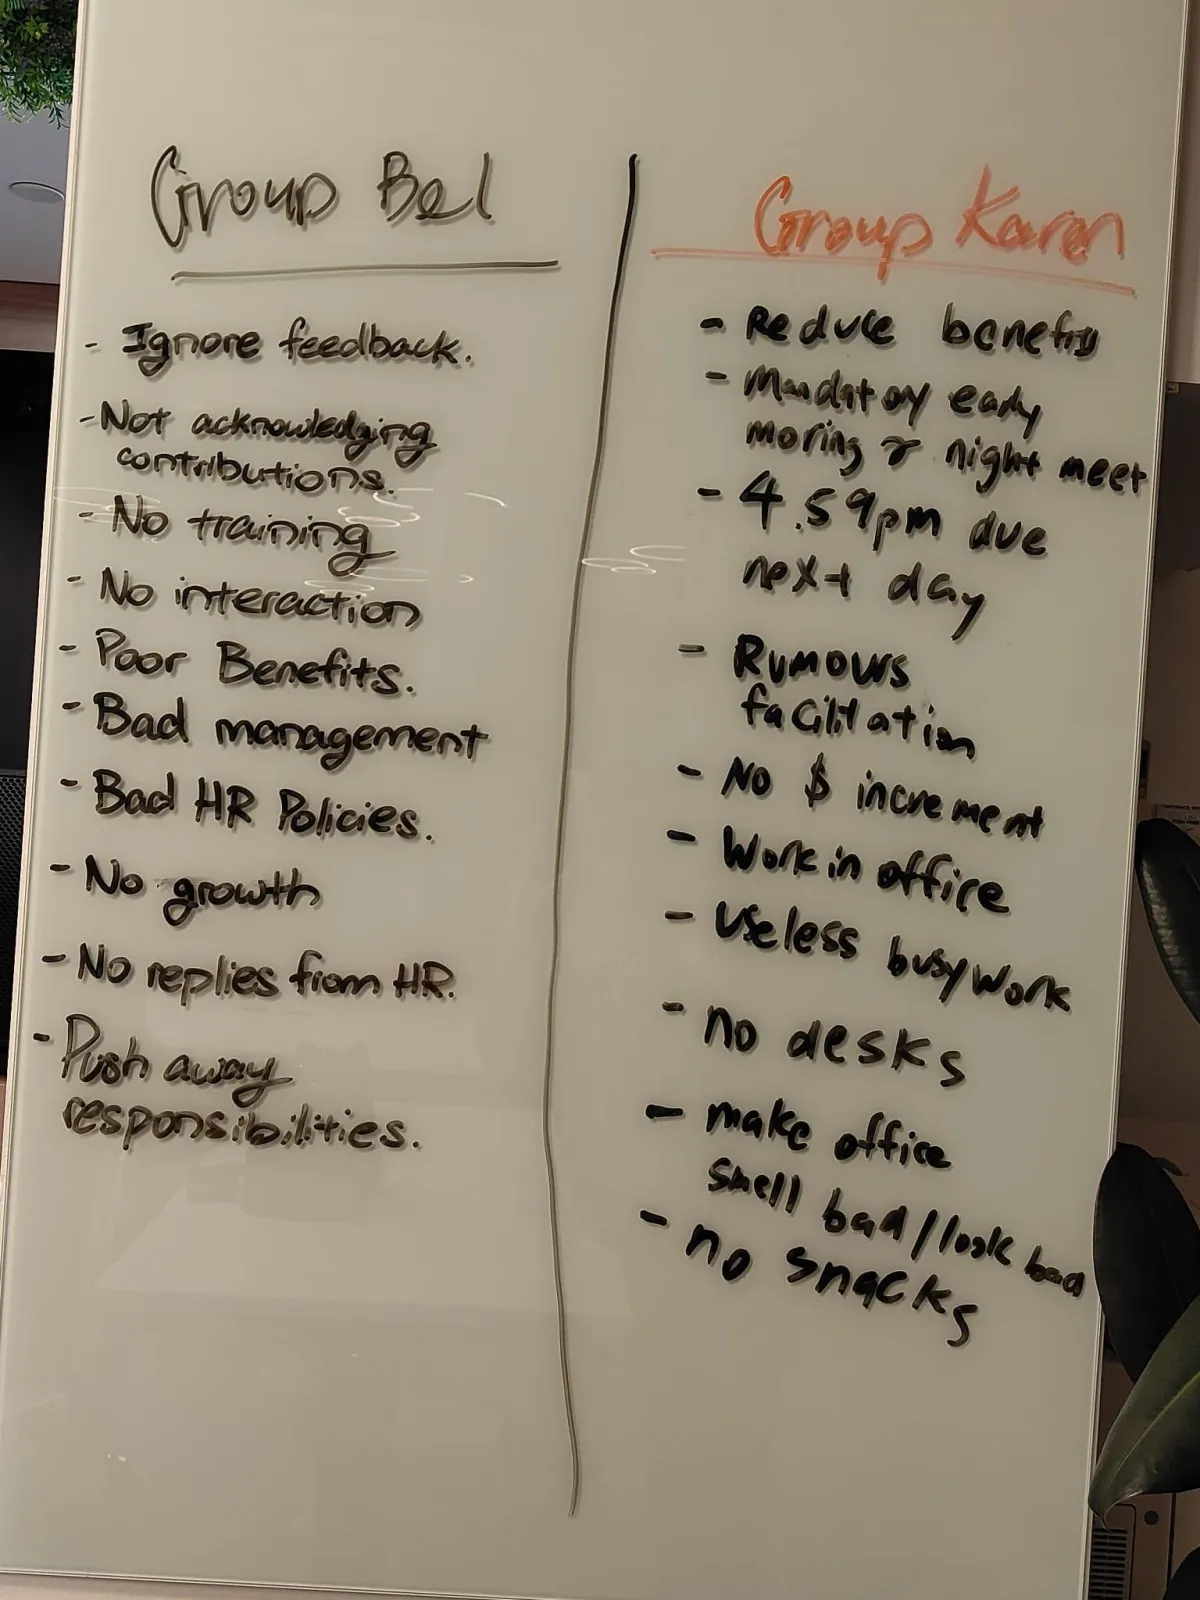 Group Bel
- Ignore feedback.
- Not acknowledging
contributions.
- No training
- No interaction
- Poor Benefits.
- Bad management
- Bad HR Policies.
- No growth
- No replies from HR.
- Push away
responsibilities.
Group Karen
- Reduce benefits
- Mandatory early
moring & night meet
- 4.59pm due
next day
- Rumours
facilitation
- No $ increment
- Work in office
- Useless busywork
- no desks
- make office
smell bad/look bad
- no snacks